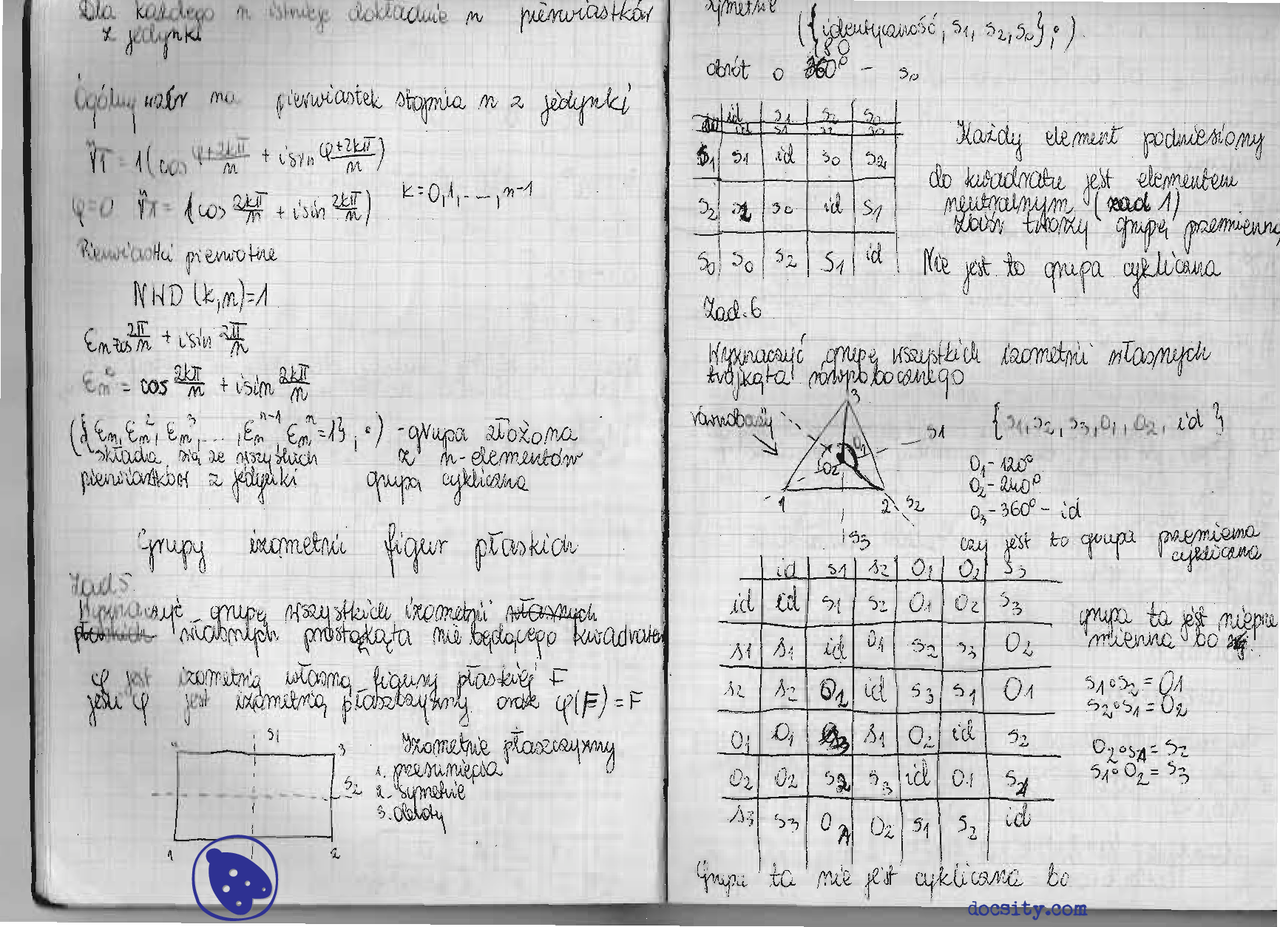 Dla każdego n istnieje dokładnie n pierwiastków
z jedynki
Ogólny wzór na pierwiastek stopnia n z jedynki
ⁿ√1 = 1(cos (φ+2kπ)/n + isin (φ+2kπ)/n)
φ=0 ⁿ√1 = 1(cos 2kπ/n + isin 2kπ/n) k=0,1,...,n-1
Pierwiastki pierwotne
NWD(k,n)=1
εn = cos 2π/n + isin 2π/n
= cos 2kπ/n + isin 2kπ/n
({εn, εn², εn³, ..., εnⁿ⁻¹, εnⁿ=1}, ·) - grupa złożona
składa się ze wszystkich z n-elementów
pierwiastków z jedynki grupa cykliczna
Grupy izometrii figur płaskich
Zad 5
Wyznaczyć grupę wszystkich izometrii własnych
płaskich własnych prostąkąta nie będącego kwadratem
φ jest izometrią własną figury płaskiej F
jeśli φ jest izometrią płaszczyzny oraz φ(F)=F
s1
3
s2
1
2
Izometrie płaszczyzny
1. przesunięcia
2. symetrie
3. obroty
symetrie
({identyczność, s1, s2, s0}, ∘)
180
obrót o 360° - s0
id s1 s2 s0
id id s1 s2 s0
s1 s1 id s0 s2
s2 s2 s0 id s1
s0 s0 s2 s1 id
Każdy element podniesiony
do kwadratu jest elementem
neutralnym (zad 1)
Zbiór tworzy grupę przemienną
Nie jest to grupa cykliczna
Zad. 6
Wyznaczyć grupę wszystkich izometrii własnych
trójkąta równobocznego
równoboczny
3
s1
O1
O2
1
2
s2
s3
{s1, s2, s3, O1, O2, id}
O1 - 120°
O2 - 240°
O3 - 360° - id
czy jest to grupa przemienna
cykliczna
id s1 s2 O1 O2 s3
id id s1 s2 O1 O2 s3
s1 s1 id O1 s2 s3 O2
s2 s2 O2 id s3 s1 O1
O1 O1 s3 s1 O2 id s2
O2 O2 s2 s3 id O1 s1
s3 s3 O1 O2 s1 s2 id
grupa ta jest nieprze
mienna bo
s1∘s2 = O1
s2∘s1 = O2
O2∘s1 = s2
s1∘O2 = s3
Grupa ta nie jest cykliczna bo
docsity.com